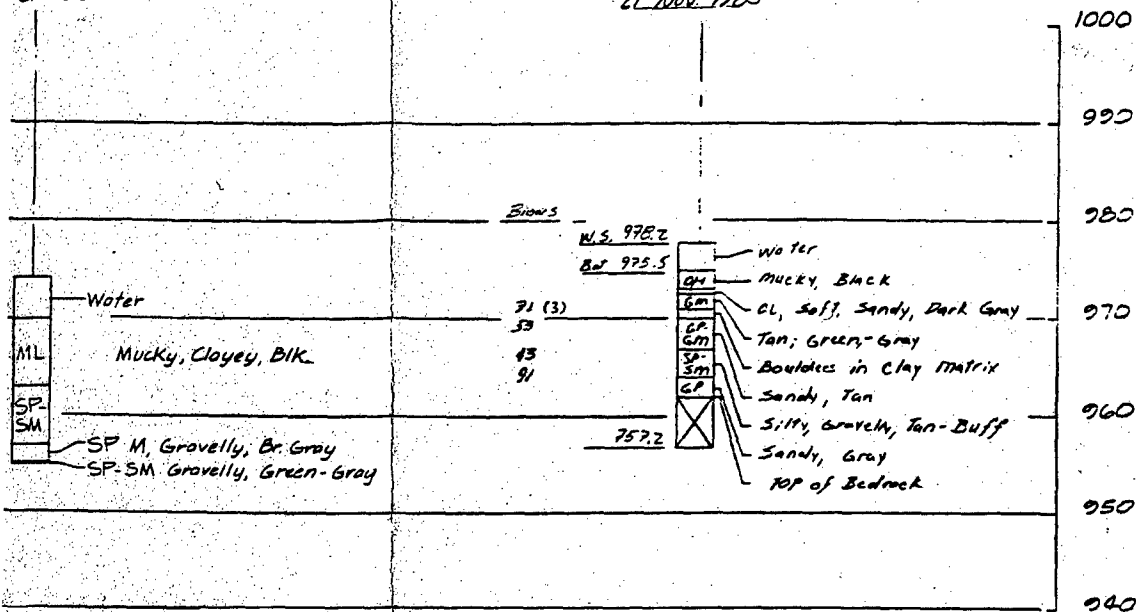 1000
990
980
970
960
950
940
Water
ML
Mucky, Clayey, Blk.
SP-
SM
SP M, Gravelly, Br. Gray
SP-SM Gravelly, Green-Gray
Blows
71 (3)
53
43
91
W.S. 978.2
Bot 975.5
957.2
OH
GM
GP-
GM
SP-
SM
GP
Water
Mucky, Black
CL, Soft, Sandy, Dark Gray
Tan; Green-Gray
Boulders in Clay Matrix
Sandy, Tan
Silty, Gravelly, Tan-Buff
Sandy, Gray
TOP of Bedrock